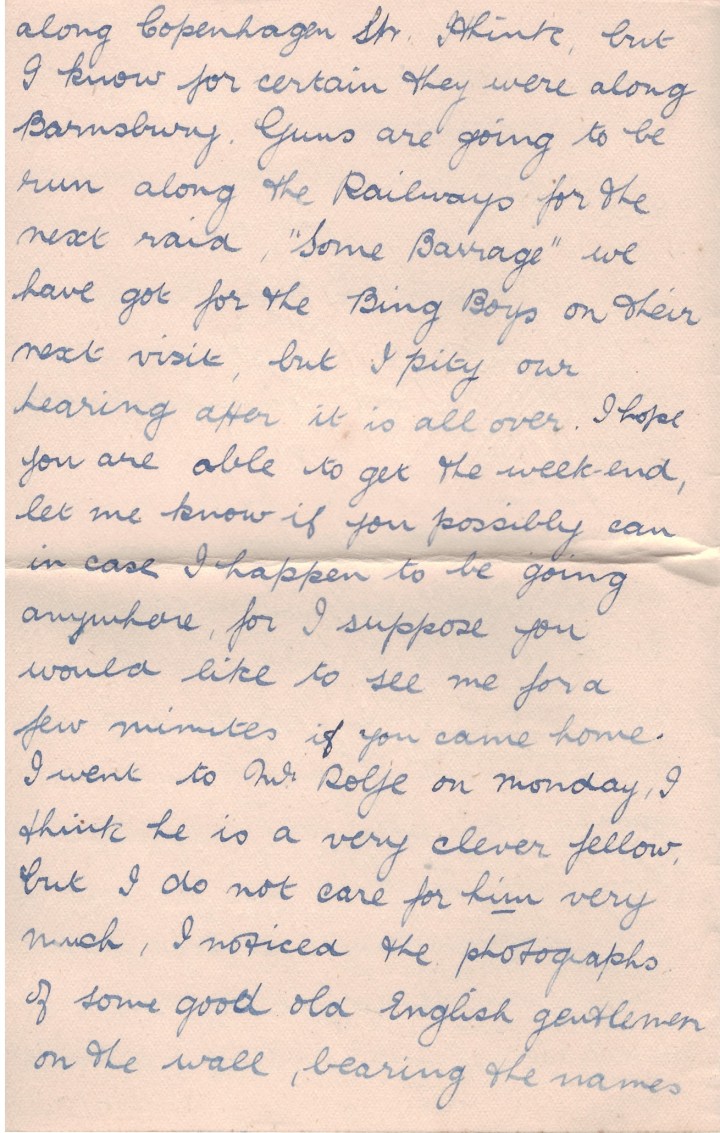 along Copenhagen Str. I think, but
I know for certain they were along
Barnsbury. Guns are going to be
run along the Railways for the
next raid, "Some Barrage" we
have got for the Bing Boys on their
next visit, but I pity our
hearing after it is all over. I hope
you are able to get the week-end,
let me know if you possibly can
in case I happen to be going
anywhere, for I suppose you
would like to see me for a
few minutes if you came home.
I went to Mr Rolfe on monday, I
think he is a very clever fellow,
but I do not care for him very
much, I noticed the photographs
of some good old English gentlemen
on the wall, bearing the names